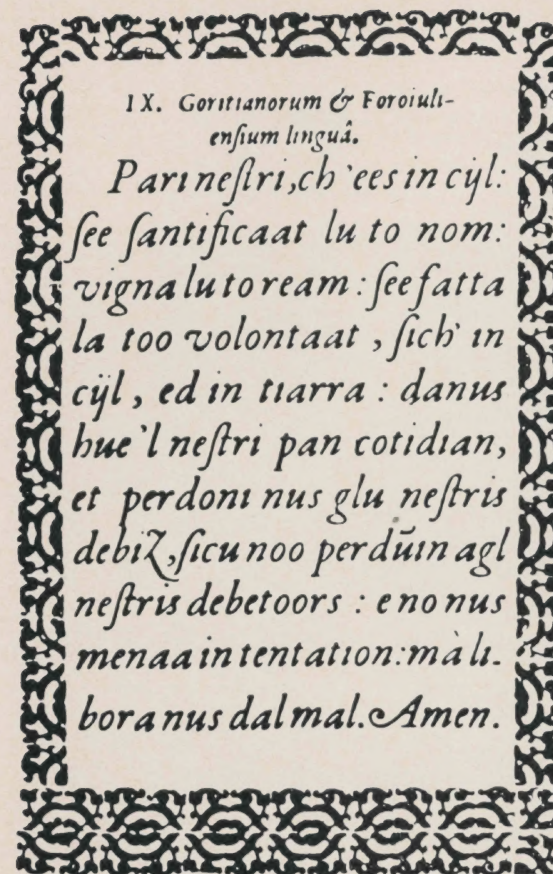 IX. Goritianorum & Foroiuli-
ensium linguâ.
Pari neſtri, ch'ees in cijl:
ſee ſantificaat lu to nom:
vigna lu to ream : ſee fatta
la too volontaat , ſich' in
cijl , ed in tiarra : danus
hue'l neſtri pan cotidian,
et perdoni nus glu neſtris
debiz, ſicu noo perdūin agl
neſtris debetoors : e no nus
menaa in tentation: mà li-
bora nus dal mal. Amen.